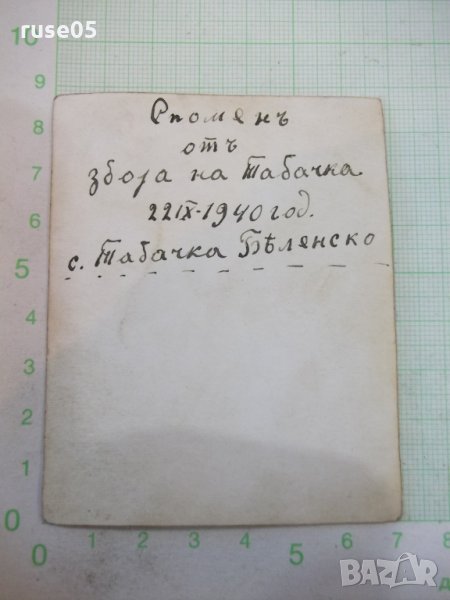 ruse05
Споменъ
отъ
збора на Табачка
22IX-1940 год.
с. Табачка Бѣленско
10
9
8
7
6
5
4
3
2
1
0
0 1 2 3 4 5 6 7 8
BAZAR